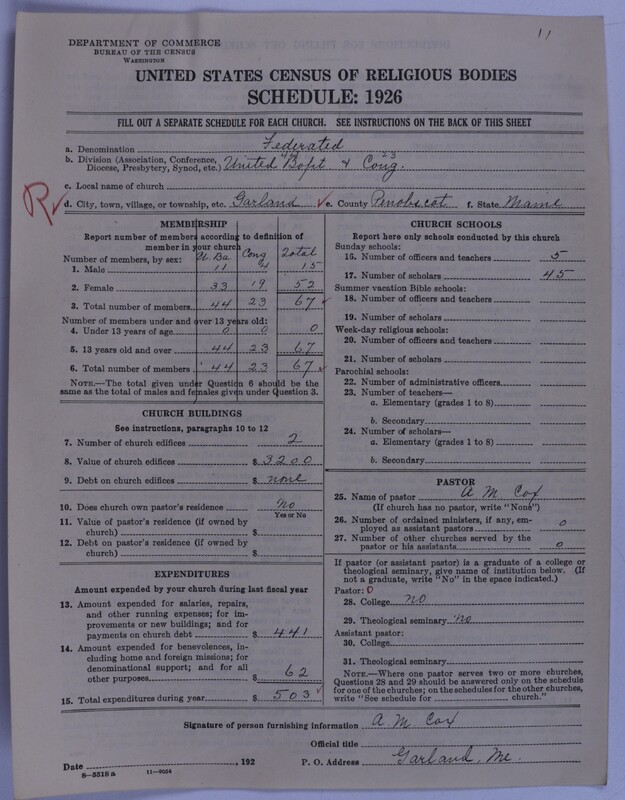 11
DEPARTMENT OF COMMERCE
BUREAU OF THE CENSUS
WASHINGTON
UNITED STATES CENSUS OF RELIGIOUS BODIES
SCHEDULE: 1926
FILL OUT A SEPARATE SCHEDULE FOR EACH CHURCH. SEE INSTRUCTIONS ON THE BACK OF THIS SHEET
a. Denomination Federated
b. Division (Association, Conference, Diocese, Presbytery, Synod, etc.) United Bapt & Cong. 23
c. Local name of church
R
d. City, town, village, or township, etc. Garland e. County Penobscot f. State Maine
MEMBERSHIP
Report number of members according to definition of
member in your church
Number of members, by sex: U Ba. Cong Total
1. Male 11 4 15
2. Female 33 19 52
3. Total number of members 44 23 67
Number of members under and over 13 years old:
4. Under 13 years of age 0 0 0
5. 13 years old and over 44 23 67
6. Total number of members 44 23 67
NOTE.—The total given under Question 6 should be the
same as the total of males and females given under Question 3.
CHURCH BUILDINGS
See instructions, paragraphs 10 to 12
7. Number of church edifices 2
8. Value of church edifices $ 3200
9. Debt on church edifices $ none
10. Does church own pastor's residence No
Yes or No
11. Value of pastor's residence (if owned by
church) $
12. Debt on pastor's residence (if owned by
church) $
EXPENDITURES
Amount expended by your church during last fiscal year
13. Amount expended for salaries, repairs,
and other running expenses; for im-
provements or new buildings; and for
payments on church debt $ 441
14. Amount expended for benevolences, in-
cluding home and foreign missions; for
denominational support; and for all
other purposes $ 62
15. Total expenditures during year $ 503
CHURCH SCHOOLS
Report here only schools conducted by this church
Sunday schools:
16. Number of officers and teachers 5
17. Number of scholars 45
Summer vacation Bible schools:
18. Number of officers and teachers
19. Number of scholars
Week-day religious schools:
20. Number of officers and teachers
21. Number of scholars
Parochial schools:
22. Number of administrative officers
23. Number of teachers—
a. Elementary (grades 1 to 8)
b. Secondary
24. Number of scholars—
a. Elementary (grades 1 to 8)
b. Secondary
PASTOR
25. Name of pastor A M. Cox
(If church has no pastor, write "None")
26. Number of ordained ministers, if any, em-
ployed as assistant pastors 0
27. Number of other churches served by the
pastor or his assistants 0
If pastor (or assistant pastor) is a graduate of a college or
theological seminary, give name of institution below. (If
not a graduate, write "No" in the space indicated.)
Pastor: 0
28. College No
29. Theological seminary No
Assistant pastor:
30. College
31. Theological seminary
NOTE.—Where one pastor serves two or more churches,
Questions 28 and 29 should be answered only on the schedule
for one of the churches; on the schedules for the other churches,
write "See schedule for church."
Signature of person furnishing information A. M. Cox
Official title
Date , 192 P. O. Address Garland, Me.
8—5518 a 11—9054